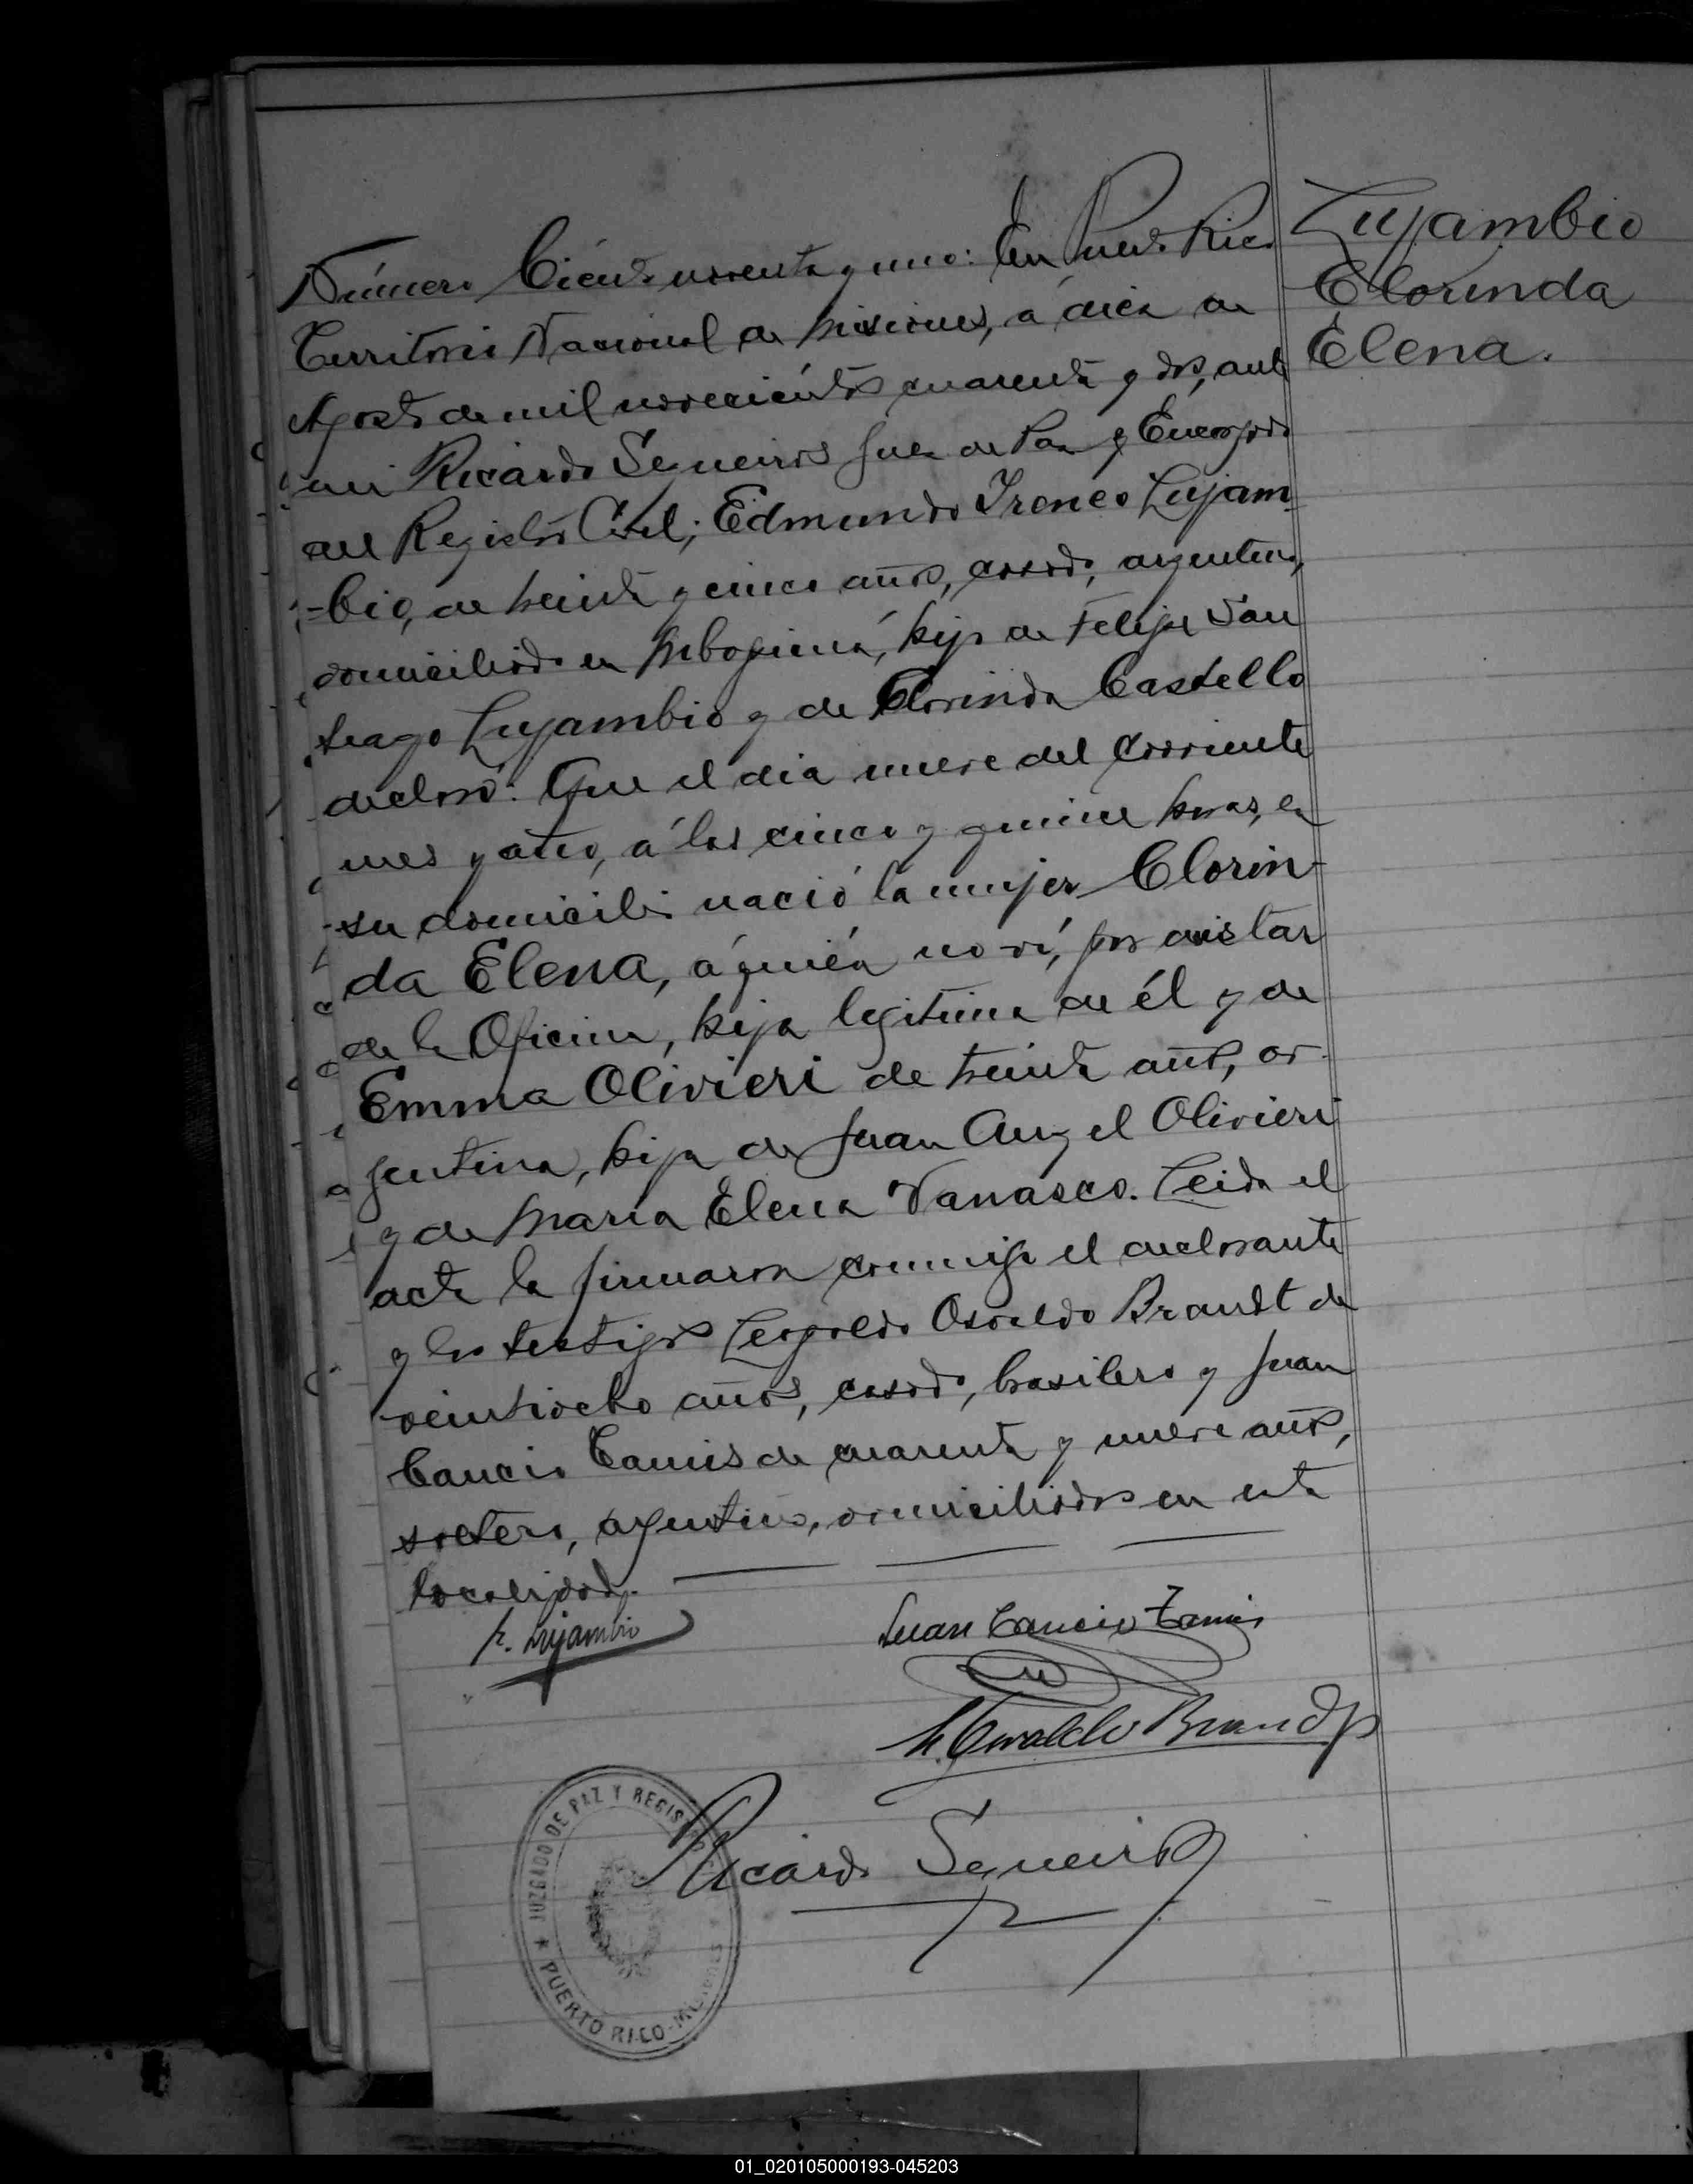 Número Ciento noventa y uno: En Puerto Rico
Territorio Nacional de Misiones, a diez de
Agosto de mil novecientos cuarenta y dos, ante
mi Ricardo Sequeiros Juez de Paz y Encargado
del Registro Civil; Edmundo Ireneo Lujam-
-bio, de treinta y cinco años, casado, argentino,
domiciliado en Mbopicuá, hijo de Felipe San
tiago Lujambio y de Clorinda Castello
declaró: Que el dia nueve del corriente
mes y año, á las cinco y quince horas, en
su domicilio nació la mujer Clorin-
da Elena, á quién no ví, por distar
de la Oficina, hija legitima de él y de
Emma Olivieri de treinta años, ar-
gentina, hija de Juan Angel Olivieri
y de Maria Elena Vanasco. Leida el
acta la firmaron conmigo el declarante
y los testigos Leopoldo Osvaldo Brandt de
veintiocho años, casado, brasilero y Juan
Cancio Tamis de cuarenta y nueve años,
soltero, argentino, domiciliados en esta
localidad.
Lujambio
Clorinda
Elena.
Lujambio
Juan Cancio Tamis
Ricardo Sequeiros
JUZGADO DE PAZ Y REGISTRO
PUERTO RICO - MISIONES
01_020105000193-045203